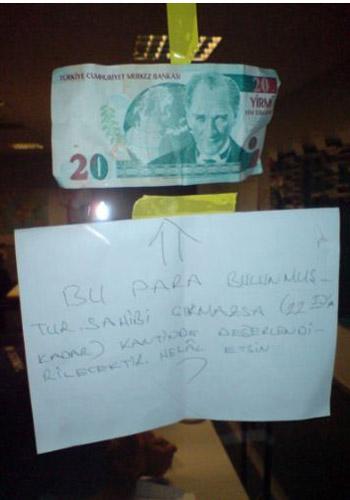 TÜRKİYE CUMHURİYET MERKEZ BANKASI
20
YİRMİ
20
BU PARA BULUNMUŞ-
TUR. SAHİBİ ÇIKMAZSA (22
KADAR) KANTİNDE DEĞERLENDİ-
RİLECEKTİR. HELÂL ETSİN